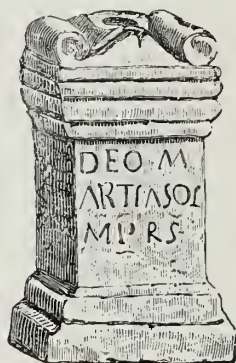 DEO M
ARTI ASOL
M P RS